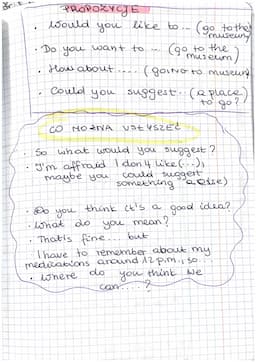 PROPOZYCJE
• Would you like to... (go to the museum)
• Do you want to ... (go to the museum)
• How about .... (going to museum)
• Could you suggest.. (a place to go?)
CO MOŻNA USŁYSZEĆ
• So what would you suggest?
• I'm affraid I don't like (...),
maybe you could suggest
something else)
• Do you think it's a good idea?
• What do you mean?
• That's fine... but
I have to remember about my
medications around 12 p.m., so...
• Where do you think we
can....?